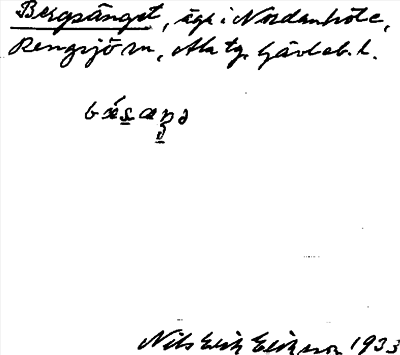 Bergsänget, äga i Nordanhöle,
Rengsjö sn, Ala tg. Gävleb. l.
bǽsæŋə
Nils Erik Eriksson 1933